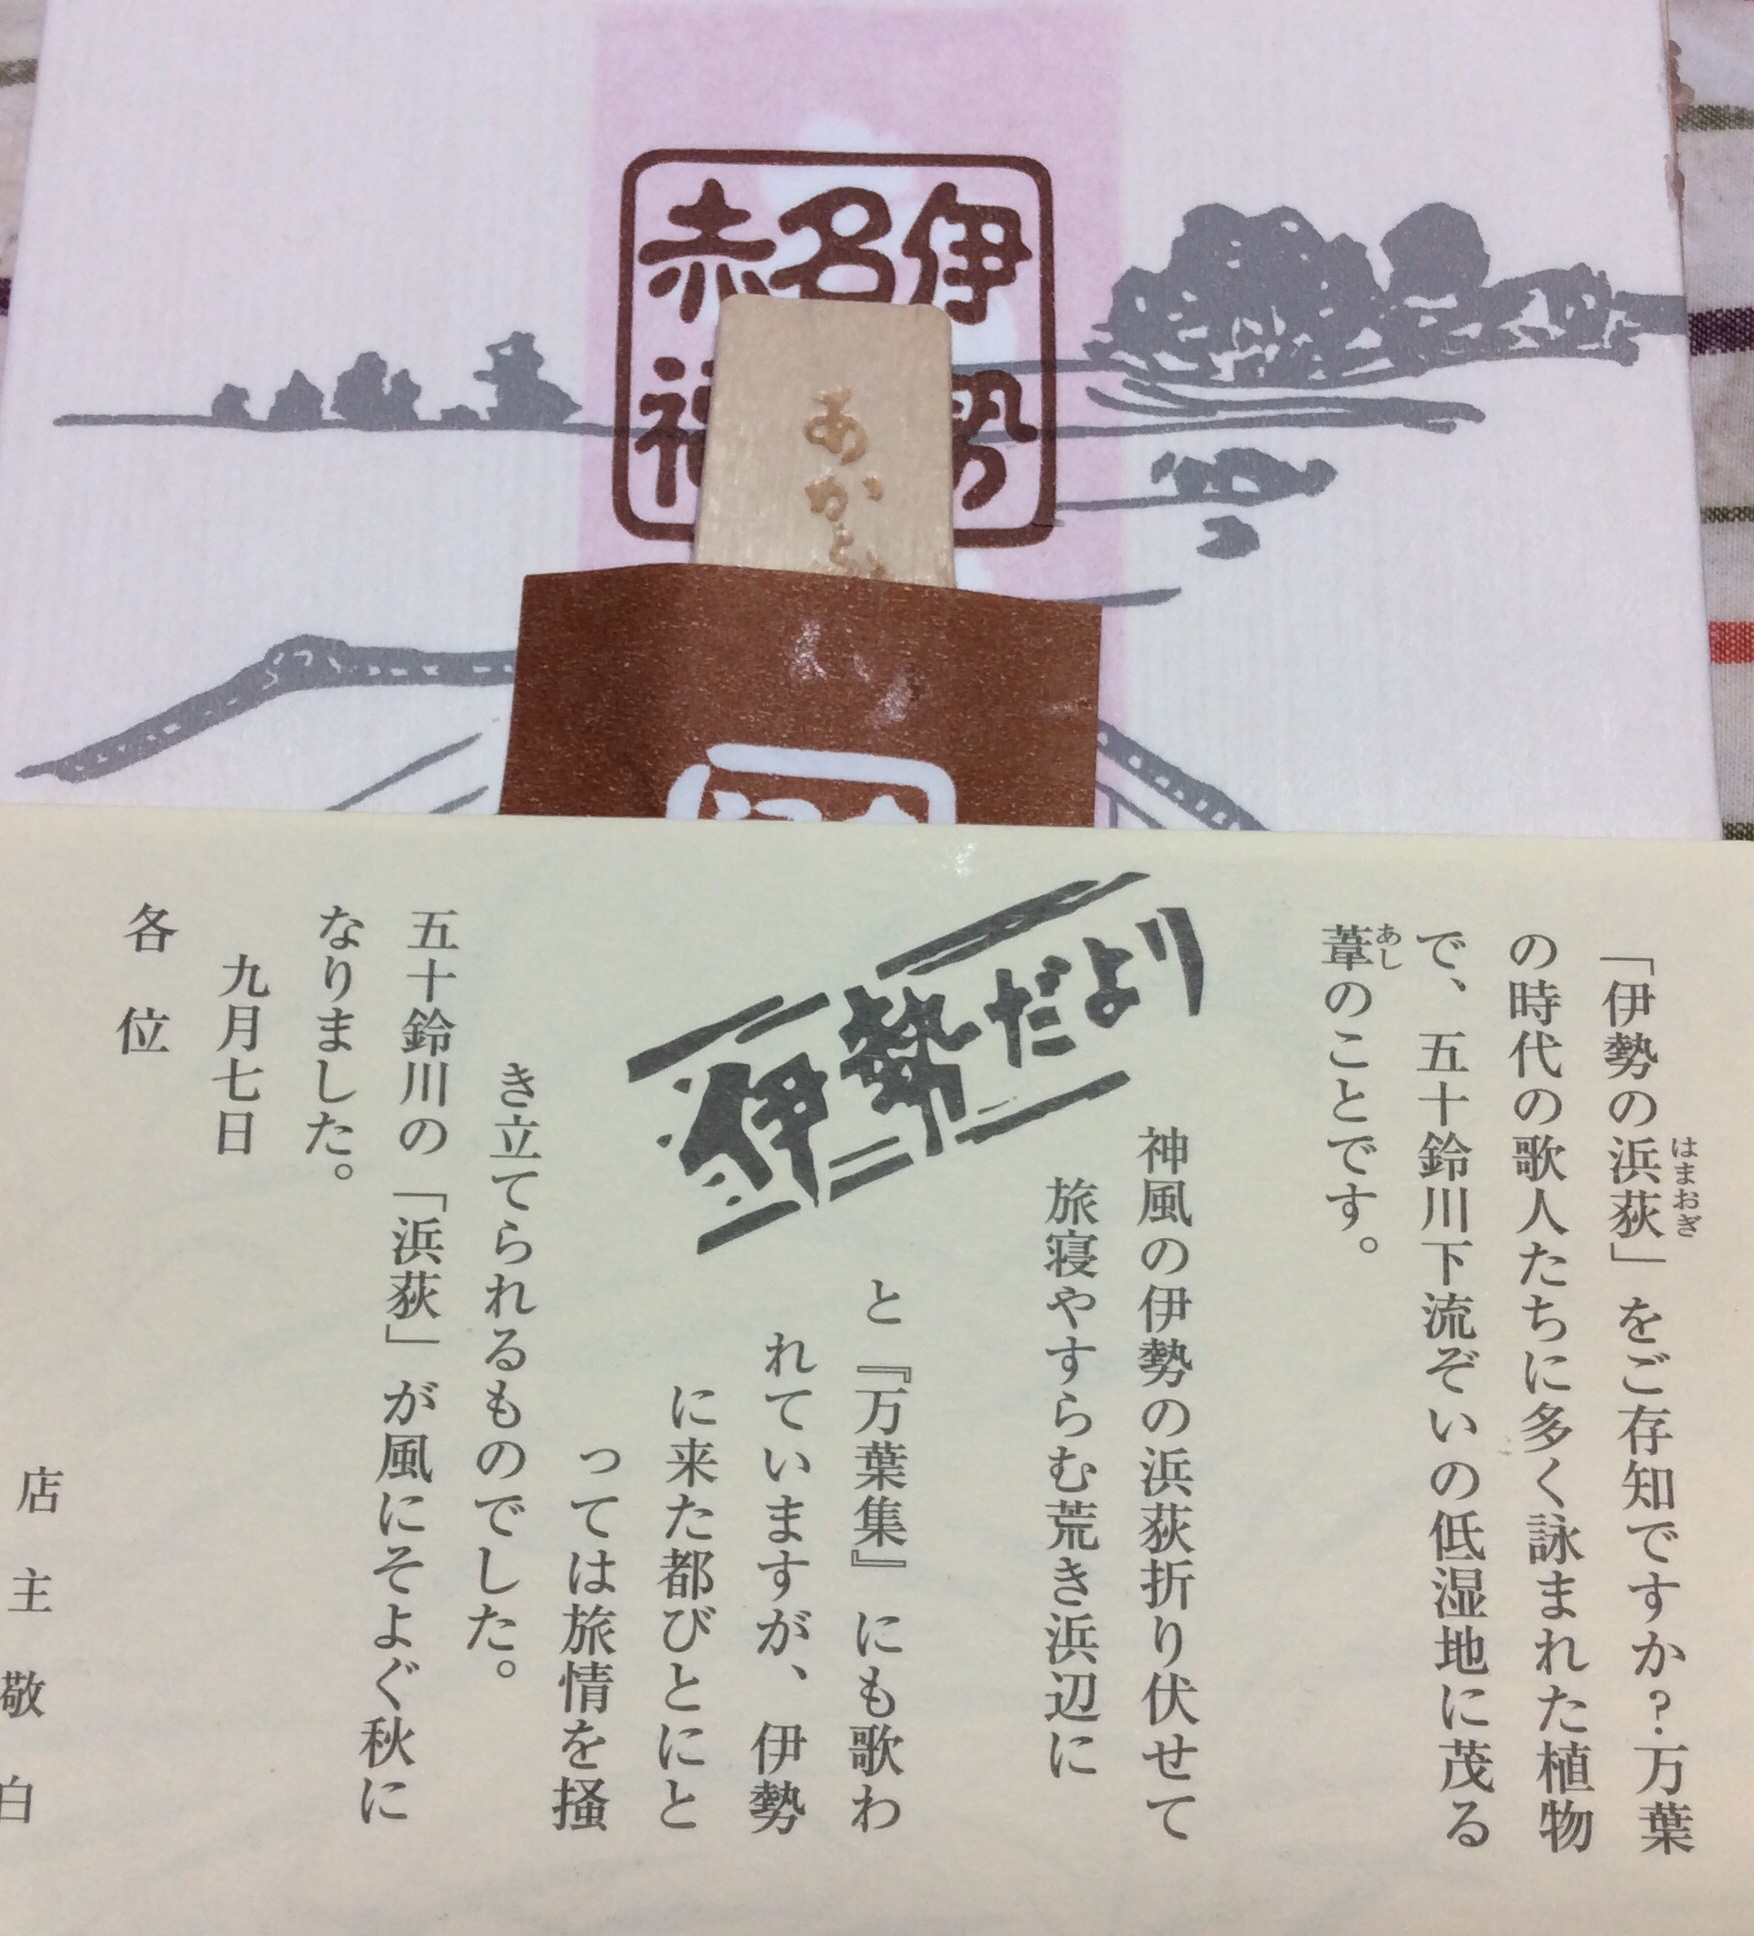 伊勢
名
赤福
あかふ
「伊勢の浜荻」をご存知ですか？万葉
はまおぎ
の時代の歌人たちに多く詠まれた植物
で、五十鈴川下流ぞいの低湿地に茂る
葦のことです。
あし
神風の伊勢の浜荻折り伏せて
旅寝やすらむ荒き浜辺に
伊勢だより
と『万葉集』にも歌わ
れていますが、伊勢
に来た都びとにと
っては旅情を掻
き立てられるものでした。
五十鈴川の「浜荻」が風にそよぐ秋に
なりました。
九月七日
各位
店主敬白